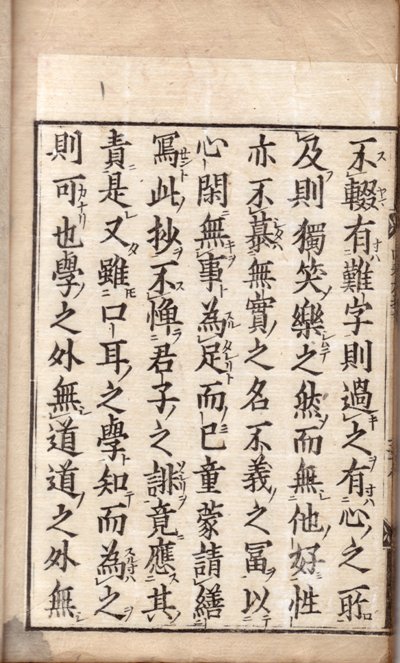 不輟有難字則過之有心之所
及則獨笑樂之然而無他好性
亦不慕無實之名不義之冨以
心閑無事為足而已童蒙請繕
冩此抄不憚君子之誹竟應其
責是又雖口耳之學知而為之
則可也學之外無道道之外無